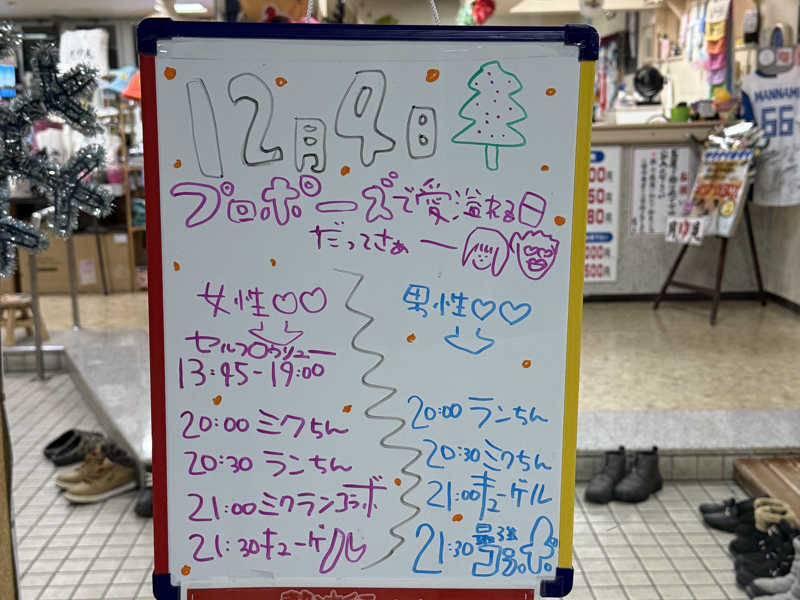 12月4日
プロポーズで愛溢れる日
だってさぁー
女性♡♡
セルフロウリュー
13:45-19:00
20:00 ミクちん
20:30 ランちん
21:00 ミクランコラボ
21:30 キューゲル
男性♡♡
20:00 ランちん
20:30 ミクちん
21:00 キューゲル
21:30 最強コラボ
MANNAMI
66